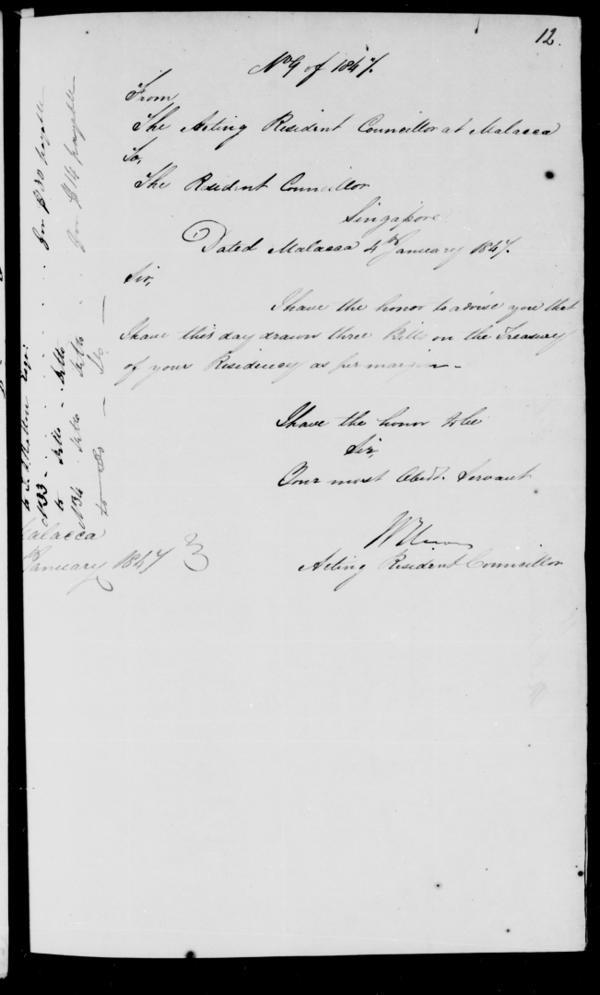 12.
No 9 of 1847.
From
The Acting Resident Councillor at Malacca
To,
The Resident Councillor
Singapore
Dated Malacca 4th January 1847.
Sir,
I have the honor to advise you that
I have this day drawn three Bills on the Treasury
of your Residency as per margin.
I have the honor to be
Sir,
Your most Obedt. Servant
Acting Resident Councillor
alacca
January 1847
Esqr.
No 33 - Ditto for $ 30 payable
to Ditto - Ditto
No 34 Ditto Ditto for $ 14 payable
to Do - Do -